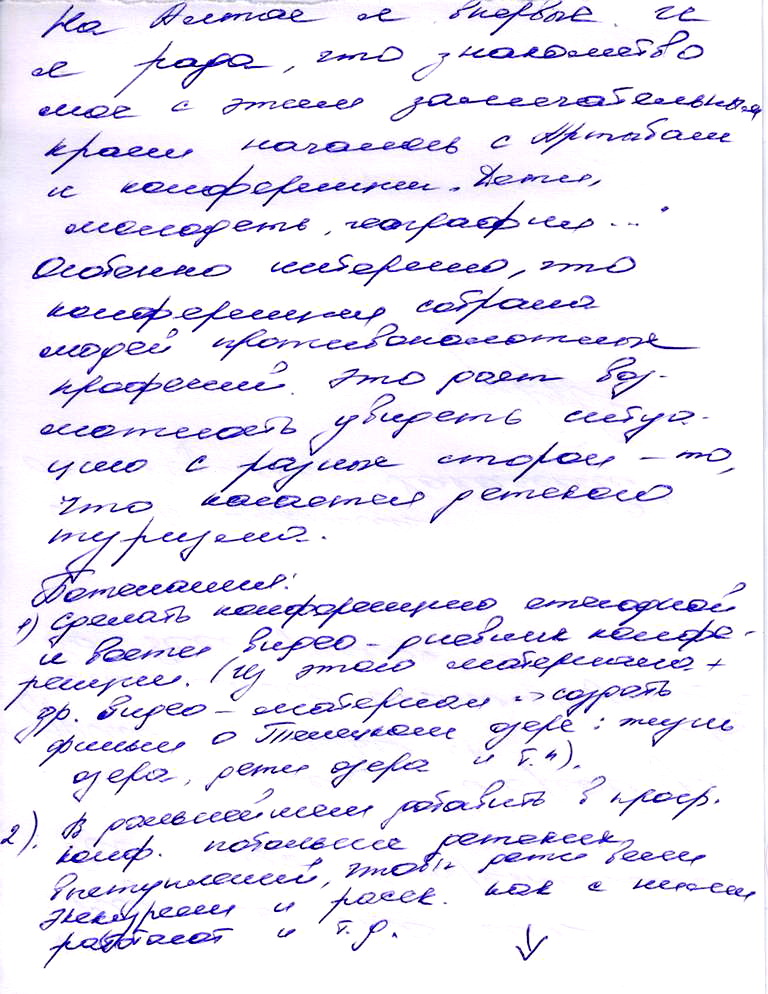 На Алтае я впервые. И
я рада, что знакомство
мое с этим замечательным
краем началось с Артыбаш
и конференции. Дети,
молодеть, география...
Особенно интересно, что
конференция собрала
людей противоположных
профессий. Это дает воз-
можность увидеть ситуа-
цию с разных сторон – то,
что касается детского
туризма.
Пожелания:
1) Сделать конференцию ежегодной
и вести видео – дневник конфе-
ренции. (Из этого материала +
др. видео – материал => создать
фильм о Телецком озере: жизнь
озера, дети озера и т.п).
2). В дальнейшем добавить в прогр.
конф. побольше детских
выступлений, чтобы дети вели
экскурсии и расск. как с ними
работают и т.д.